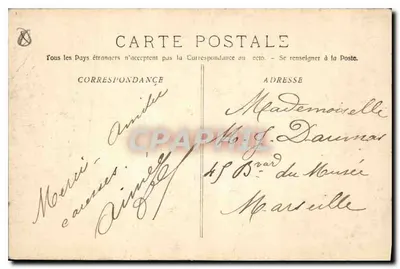 CARTE POSTALE
Tous les Pays étrangers n'acceptent pas la Correspondance au recto. - Se renseigner à la Poste.
CORRESPONDANCE
ADRESSE
Merci - Amitiés
caresses.
Aimée
Mademoiselle
M J. Daumas
45 Bvar du Musée
Marseille
CPARAMA